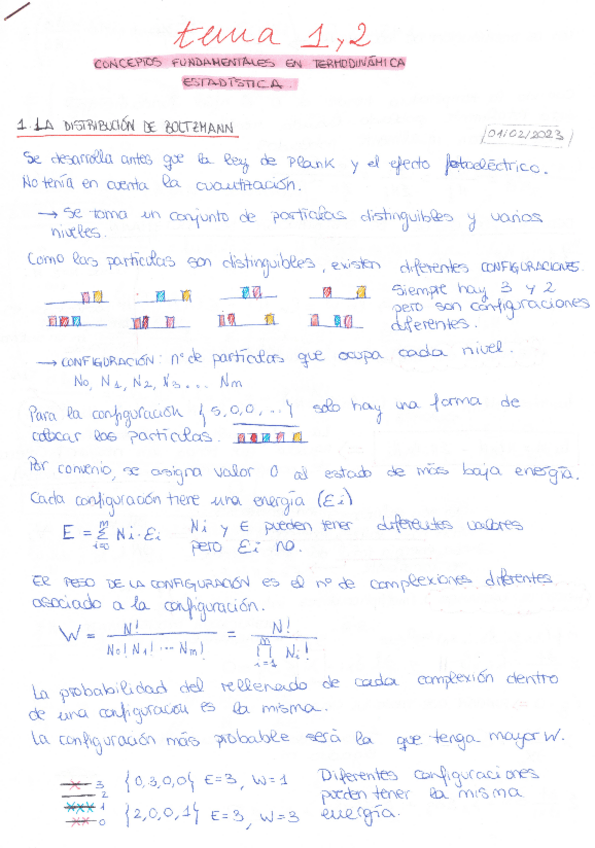 tema 1 y 2
CONCEPTOS FUNDAMENTALES EN TERMODINÁMICA
ESTADÍSTICA.
1. LA DISTRIBUCIÓN DE BOLTZMANN
01/02/2023
Se desarrolla antes que la ley de Plank y el efecto fotoeléctrico.
No tenía en cuenta la cuantización.
→ Se toma un conjunto de partículas distinguibles y varios
niveles.
Como las partículas son distinguibles, existen diferentes CONFIGURACIONES.
Siempre hay 3 y 2
pero son configuraciones
diferentes.
→ CONFIGURACIÓN: nº de partículas que ocupa cada nivel.
N0, N1, N2, N3... Nm
Para la configuración {5,0,0,...} solo hay una forma de
colocar las partículas.
Por convenio, se asigna valor 0 al estado de más baja energía.
Cada configuración tiene una energía (Ei)
E = Σ Ni·Ei (i=0, m) Ni y E pueden tener diferentes valores
pero Ei no.
EL PESO DE LA CONFIGURACIÓN es el nº de complexiones diferentes
asociado a la configuración.
W = N! / N0! N1! ... Nm! = N! / ∏ Ni! (i=1, m)
La probabilidad del rellenado de cada complexión dentro
de una configuración es la misma.
La configuración más probable será la que tenga mayor W.
3 {0,3,0,0} E=3, W=1 Diferentes configuraciones
2 pueden tener la misma
1 {2,0,0,1} E=3, W=3 energía.
0